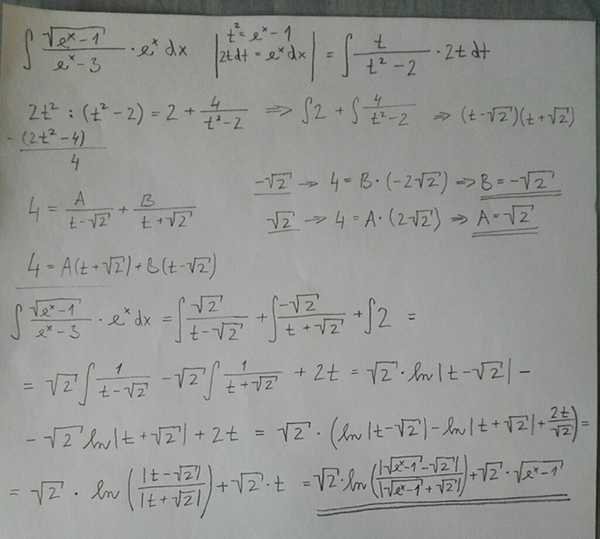 ∫ √(eˣ-1)/(eˣ-3) · eˣ dx |t² = eˣ-1 2t dt = eˣ dx| = ∫ t/(t²-2) · 2t dt
2t² : (t²-2) = 2 + 4/(t²-2) ⇒ ∫2 + ∫ 4/(t²-2) ⇒ (t-√2)(t+√2)
-(2t²-4)
4
4 = A/(t-√2) + B/(t+√2)
-√2 → 4 = B·(-2√2) ⇒ B = -√2
√2 → 4 = A·(2√2) ⇒ A = √2
4 = A(t+√2) + B(t-√2)
∫ √(eˣ-1)/(eˣ-3) · eˣ dx = ∫ √2/(t-√2) + ∫ -√2/(t+√2) + ∫2 =
= √2 ∫ 1/(t-√2) - √2 ∫ 1/(t+√2) + 2t = √2 · ln|t-√2| -
- √2 ln|t+√2| + 2t = √2 · (ln|t-√2| - ln|t+√2| + 2t/√2) =
= √2 · ln(|t-√2|/|t+√2|) + √2 · t = √2 · ln(|√(eˣ-1)-√2|/|√(eˣ-1)+√2|) + √2 · √(eˣ-1)